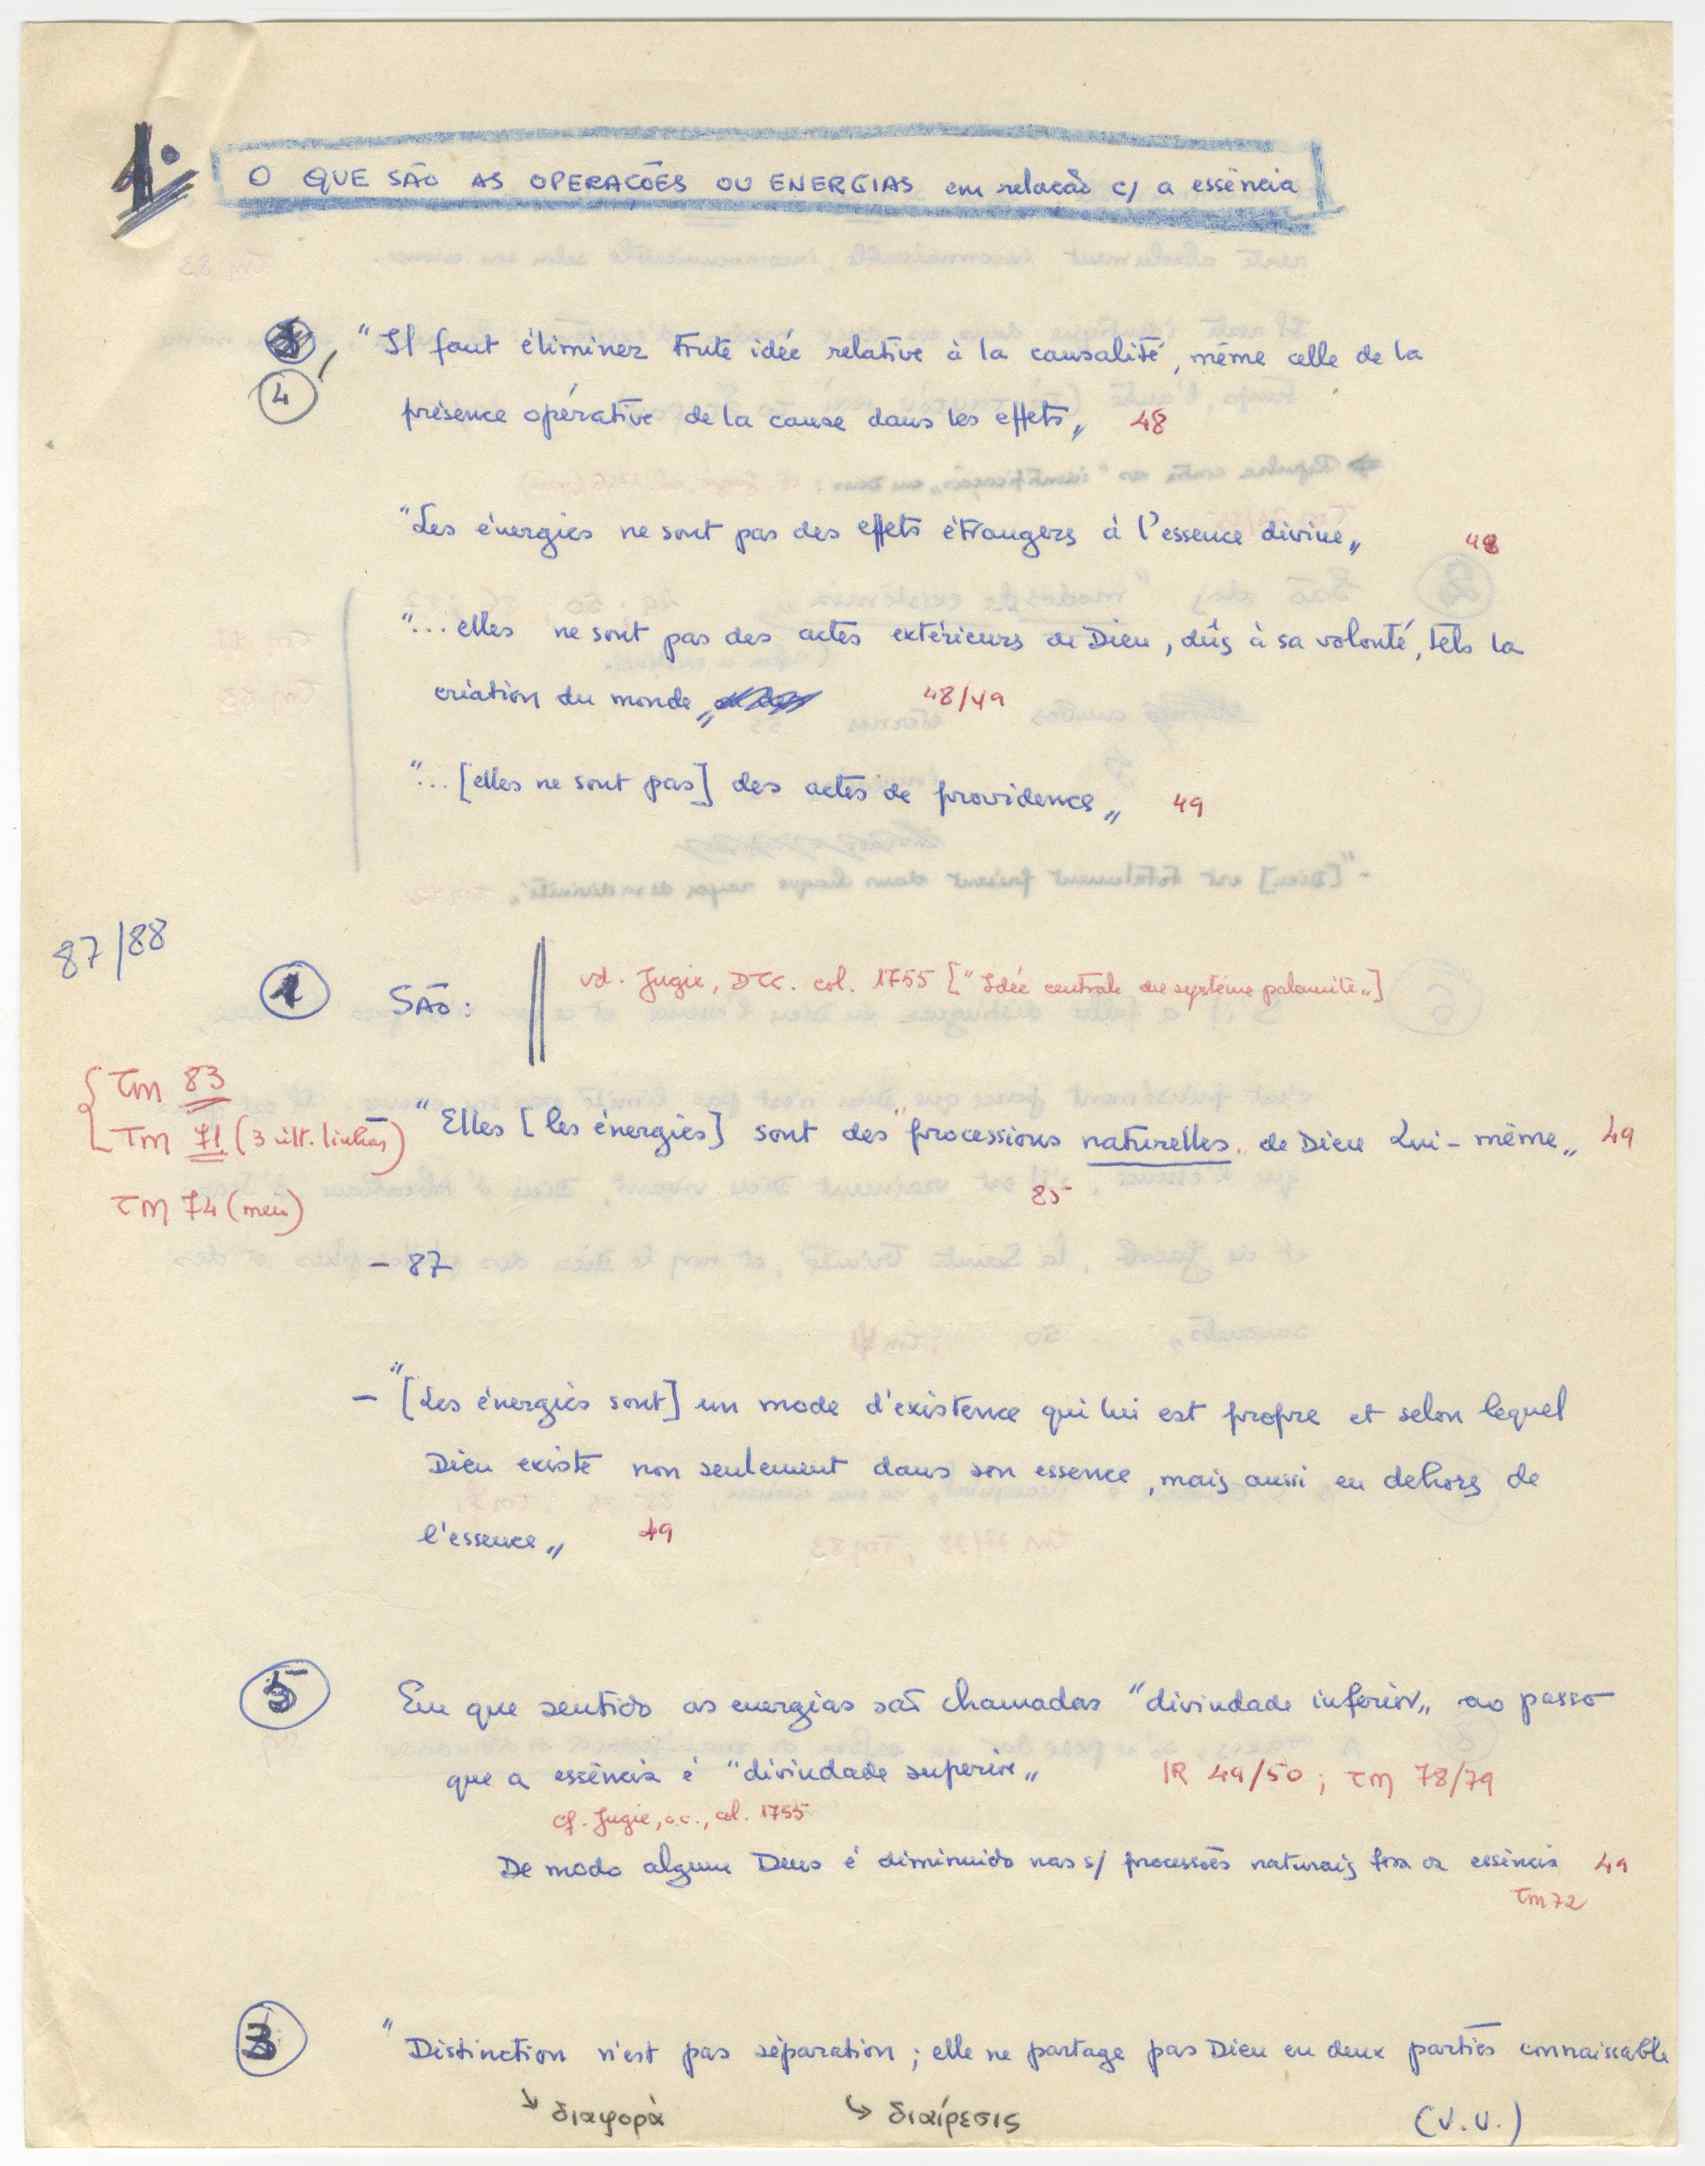 1.
O QUE SÃO AS OPERAÇÕES OU ENERGIAS em relação c/ a essência
4 "Il faut éliminer toute idée relative à la causalité, même celle de la
présence opérative de la cause dans les effets„ 48
"Les énergies ne sont pas des effets étrangers à l'essence divine„ 48
"... elles ne sont pas des actes extérieurs de Dieu, dûs à sa volonté, tels la
création du monde„ 48/49
"... [elles ne sont pas] des actes de providence„ 49
87/88
1 SÃO: vd. Jugie, DTC. col. 1755 ["Idée centrale du système palamite„]
TM 83
TM 71 (3 últ. linhas) "Elles [les énergies] sont des "processions naturelles„ de Dieu Lui-même„ 49
85
TM 74 (meu)
- 87
- "[Les énergies sont] un mode d'existence qui lui est propre et selon lequel
Dieu existe non seulement dans son essence, mais aussi en dehors de
l'essence„ 49
5 Em que sentido as energias são chamadas "divindade inferior„ ao passo
que a essência é "divindade superior„ IR 49/50; TM 78/79
cf. Jugie, o.c., col. 1755
De modo algum Deus é diminuido nas s/ processões naturais fora da essência 49
TM 72
3 "Distinction n'est pas séparation; elle ne partage pas Dieu en deux parties connaissable
↘ διαφορὰ ↪ διαίρεσις (V.V.)